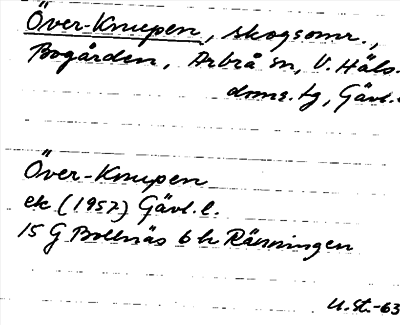 Över-Knupen, skogsomr.,
Bogården, Arbrå sn, V. Häls.
doms. tg, Gävl.
Över-Knupen
ek (1957) Gävl. l.
15 G Bollnäs 6 h Ränningen
U. St. -63